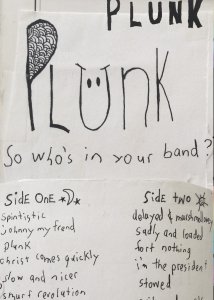 PLUNK
PLUNK
So who's in your band?
Side One
spintistic
johnny my frend
plunk
christ comes quickly
slow and nicer
smurf revolution
Side two
delayed & marshmallowy
sadly and loaded
fort nothing
i'm the president
stowed